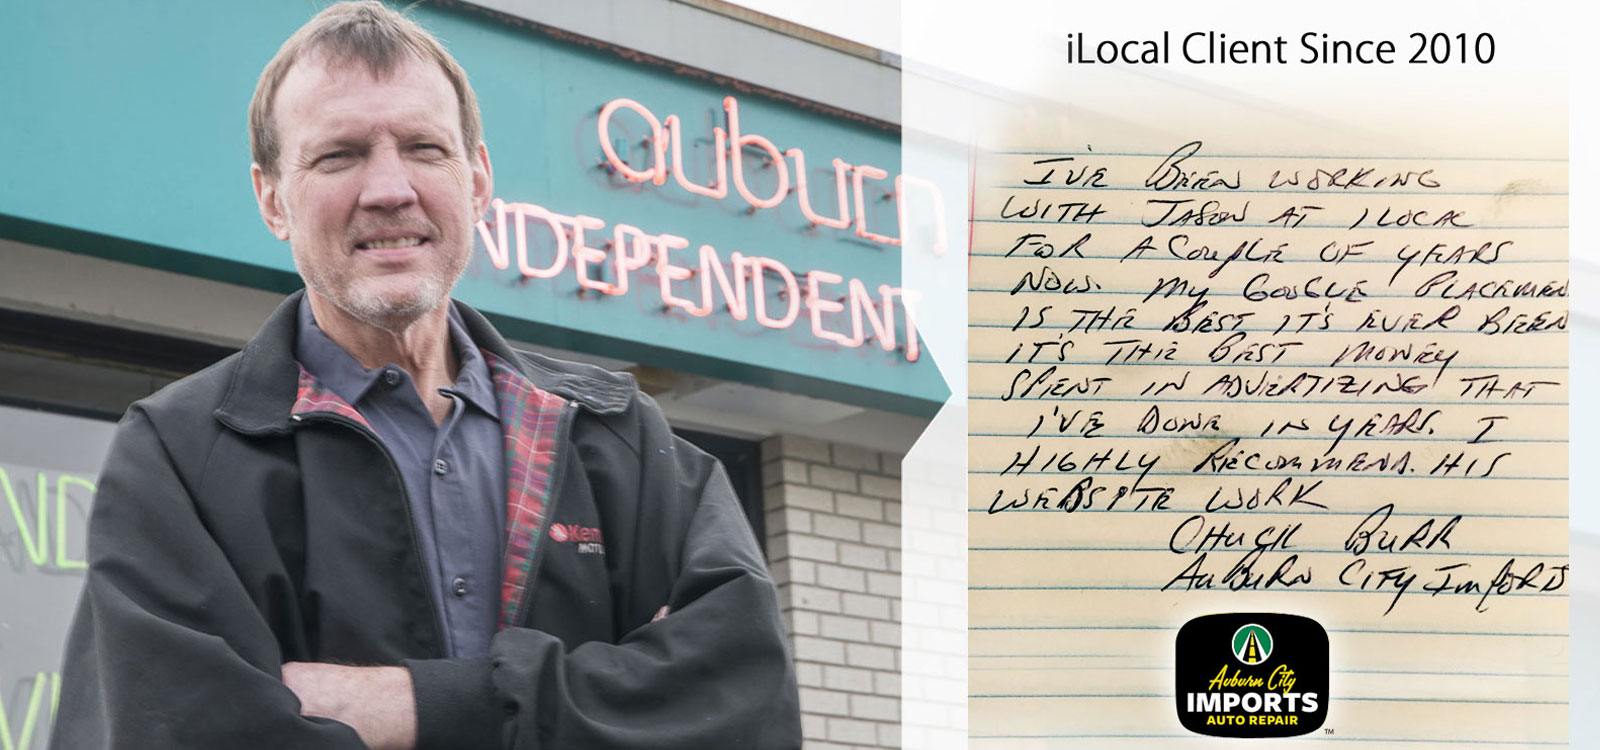 iLocal Client Since 2010
auburn
NDEPENDENT
ND
Kem
I'VE BEEN WORKING
WITH JASON AT ILOCAL
FOR A COUPLE OF YEARS
NOW. MY GOOGLE PLACEMEN
IS THE BEST IT'S EVER BEEN
IT'S THE BEST MONEY
SPENT IN ADVERTIZING THAT
I'VE DONE IN YEARS. I
HIGHLY RECOMMEND. HIS
WEBSITE WORK
CHUCK BURR
AUBURN CITY IMPORTS
Auburn City
IMPORTS
AUTO REPAIR
TM